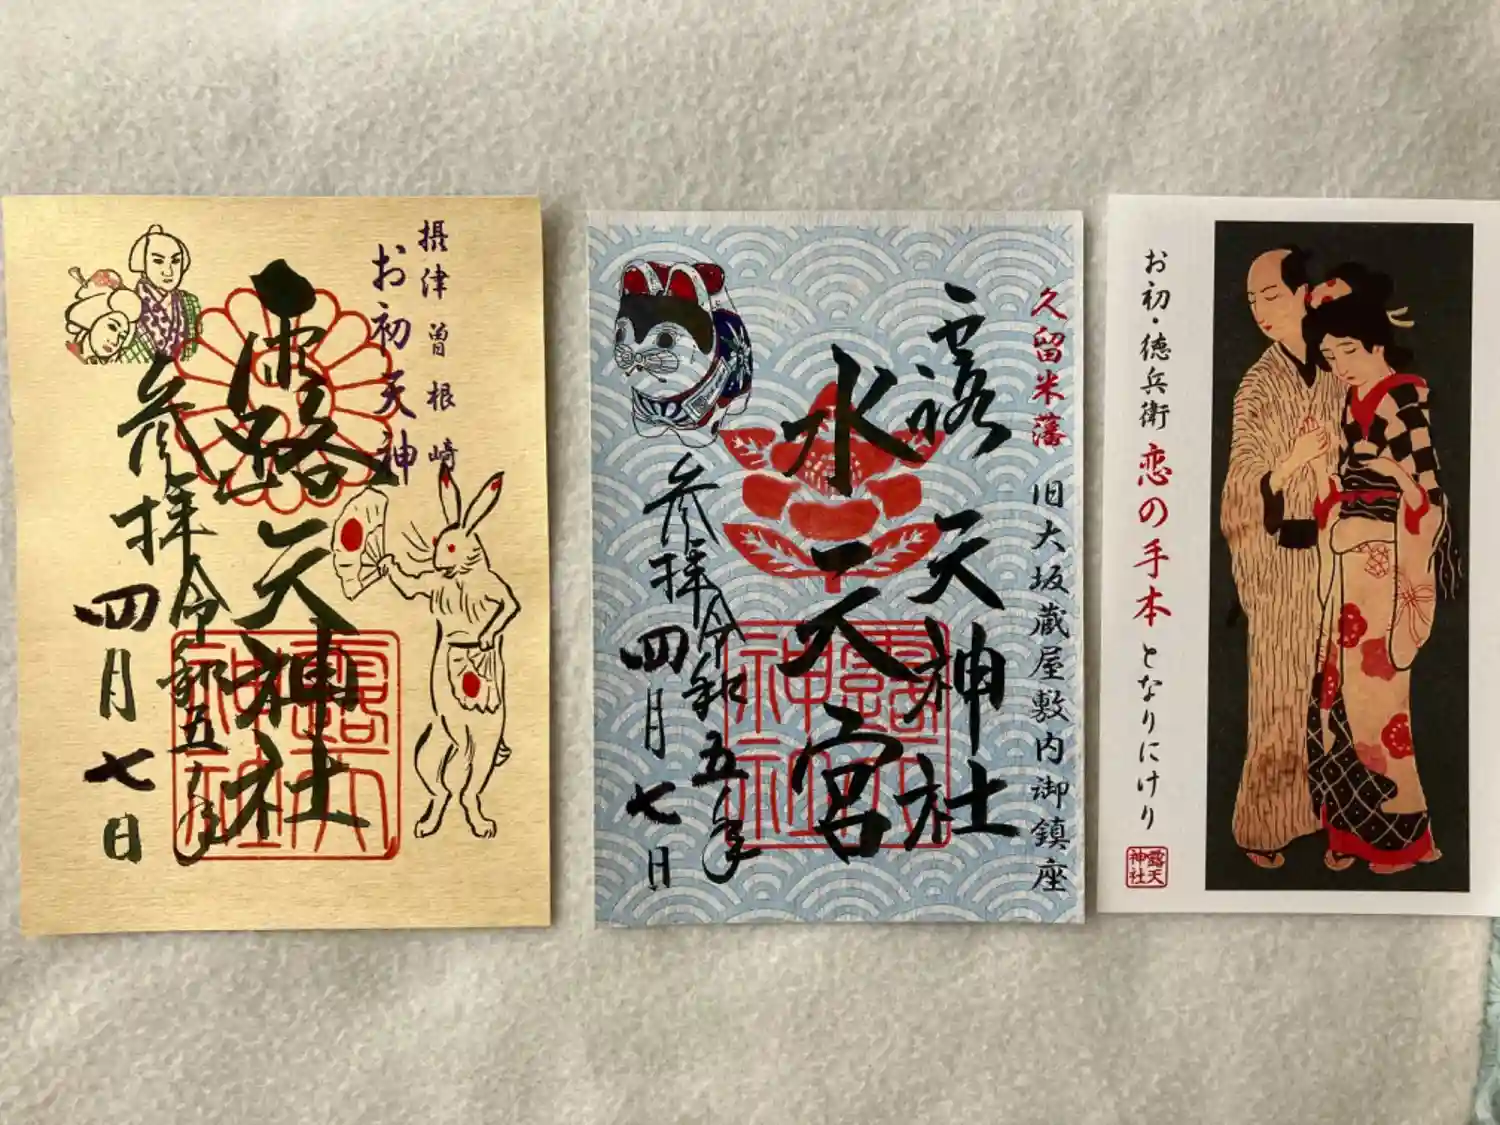 摂津曽根崎
お初天神
露天神社
参拝
令和五年
四月七日
露天神社
久留米藩 旧大坂蔵屋敷内御鎮座
露天神社
水天宮
参拝
令和五年
四月七日
露天神社
お初・徳兵衛 恋の手本 となりにけり
露天神社